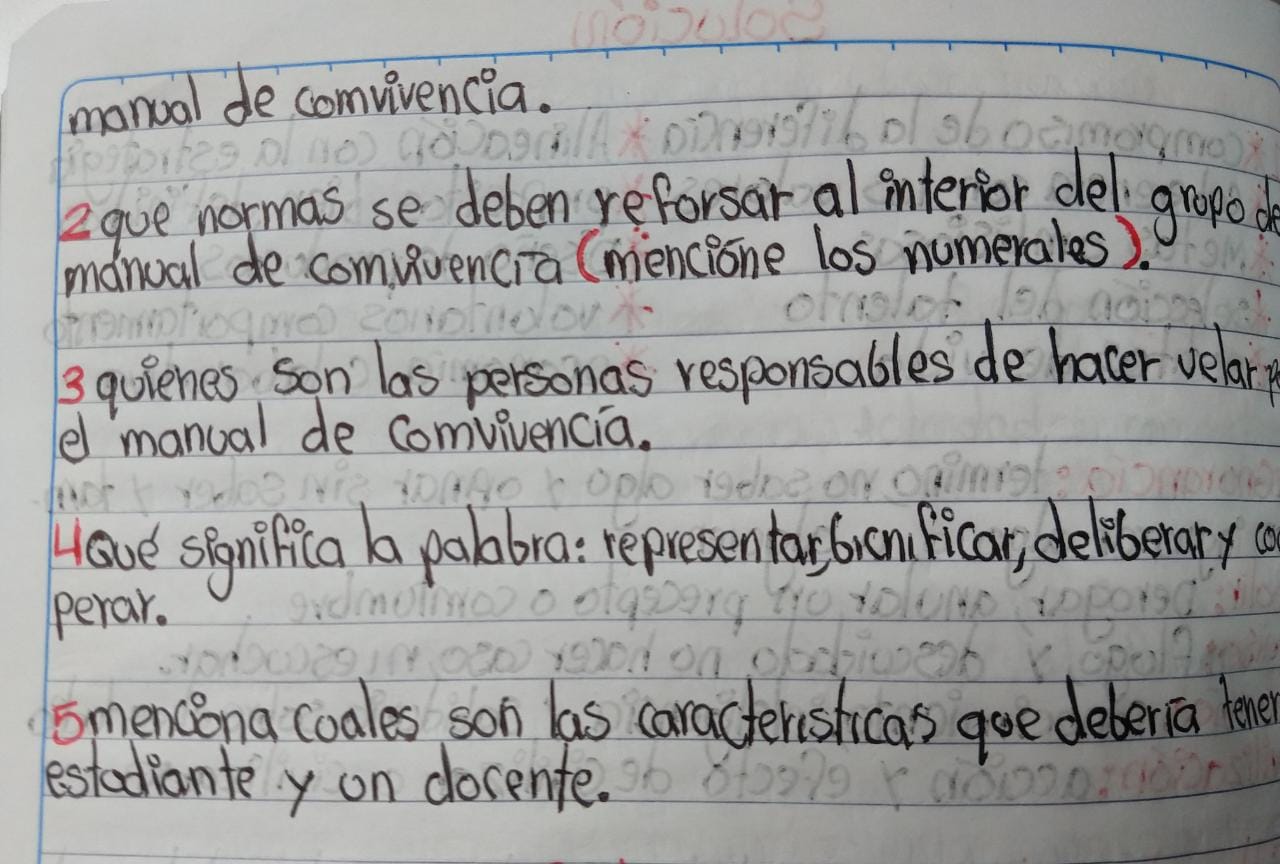 manual de comvivencia.
2 que normas se deben reforsar al interior del grupo de
manual de comvivencia (mencione los numerales).
3 quienes son las personas responsables de hacer velar
el manual de comvivencia.
4 Qué significa la palabra: representar, bicnificar, deliberar y coo
perar.
5 menciona cuales son las caracteristicas que debería tener
estudiante y un docente.